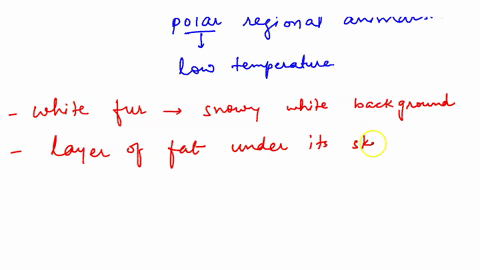 polar regional animals
↓
low temperature
- white fur → snowy white background
- Layer of fat under its sk